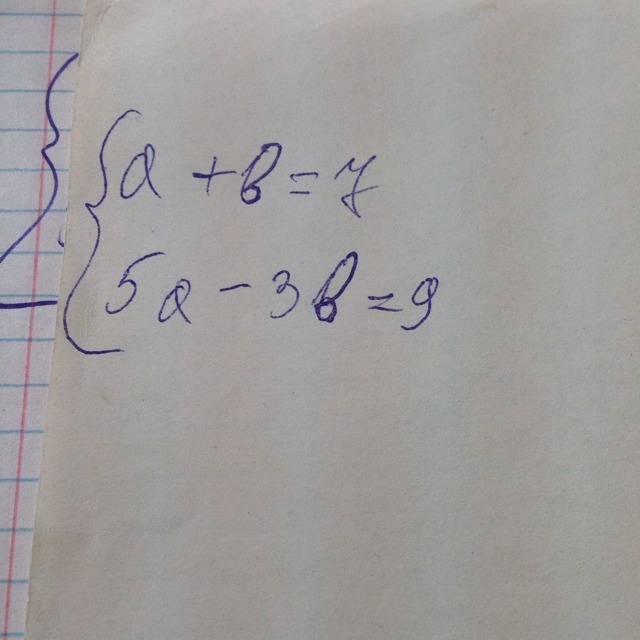 a + b = 7
5a - 3b = 9